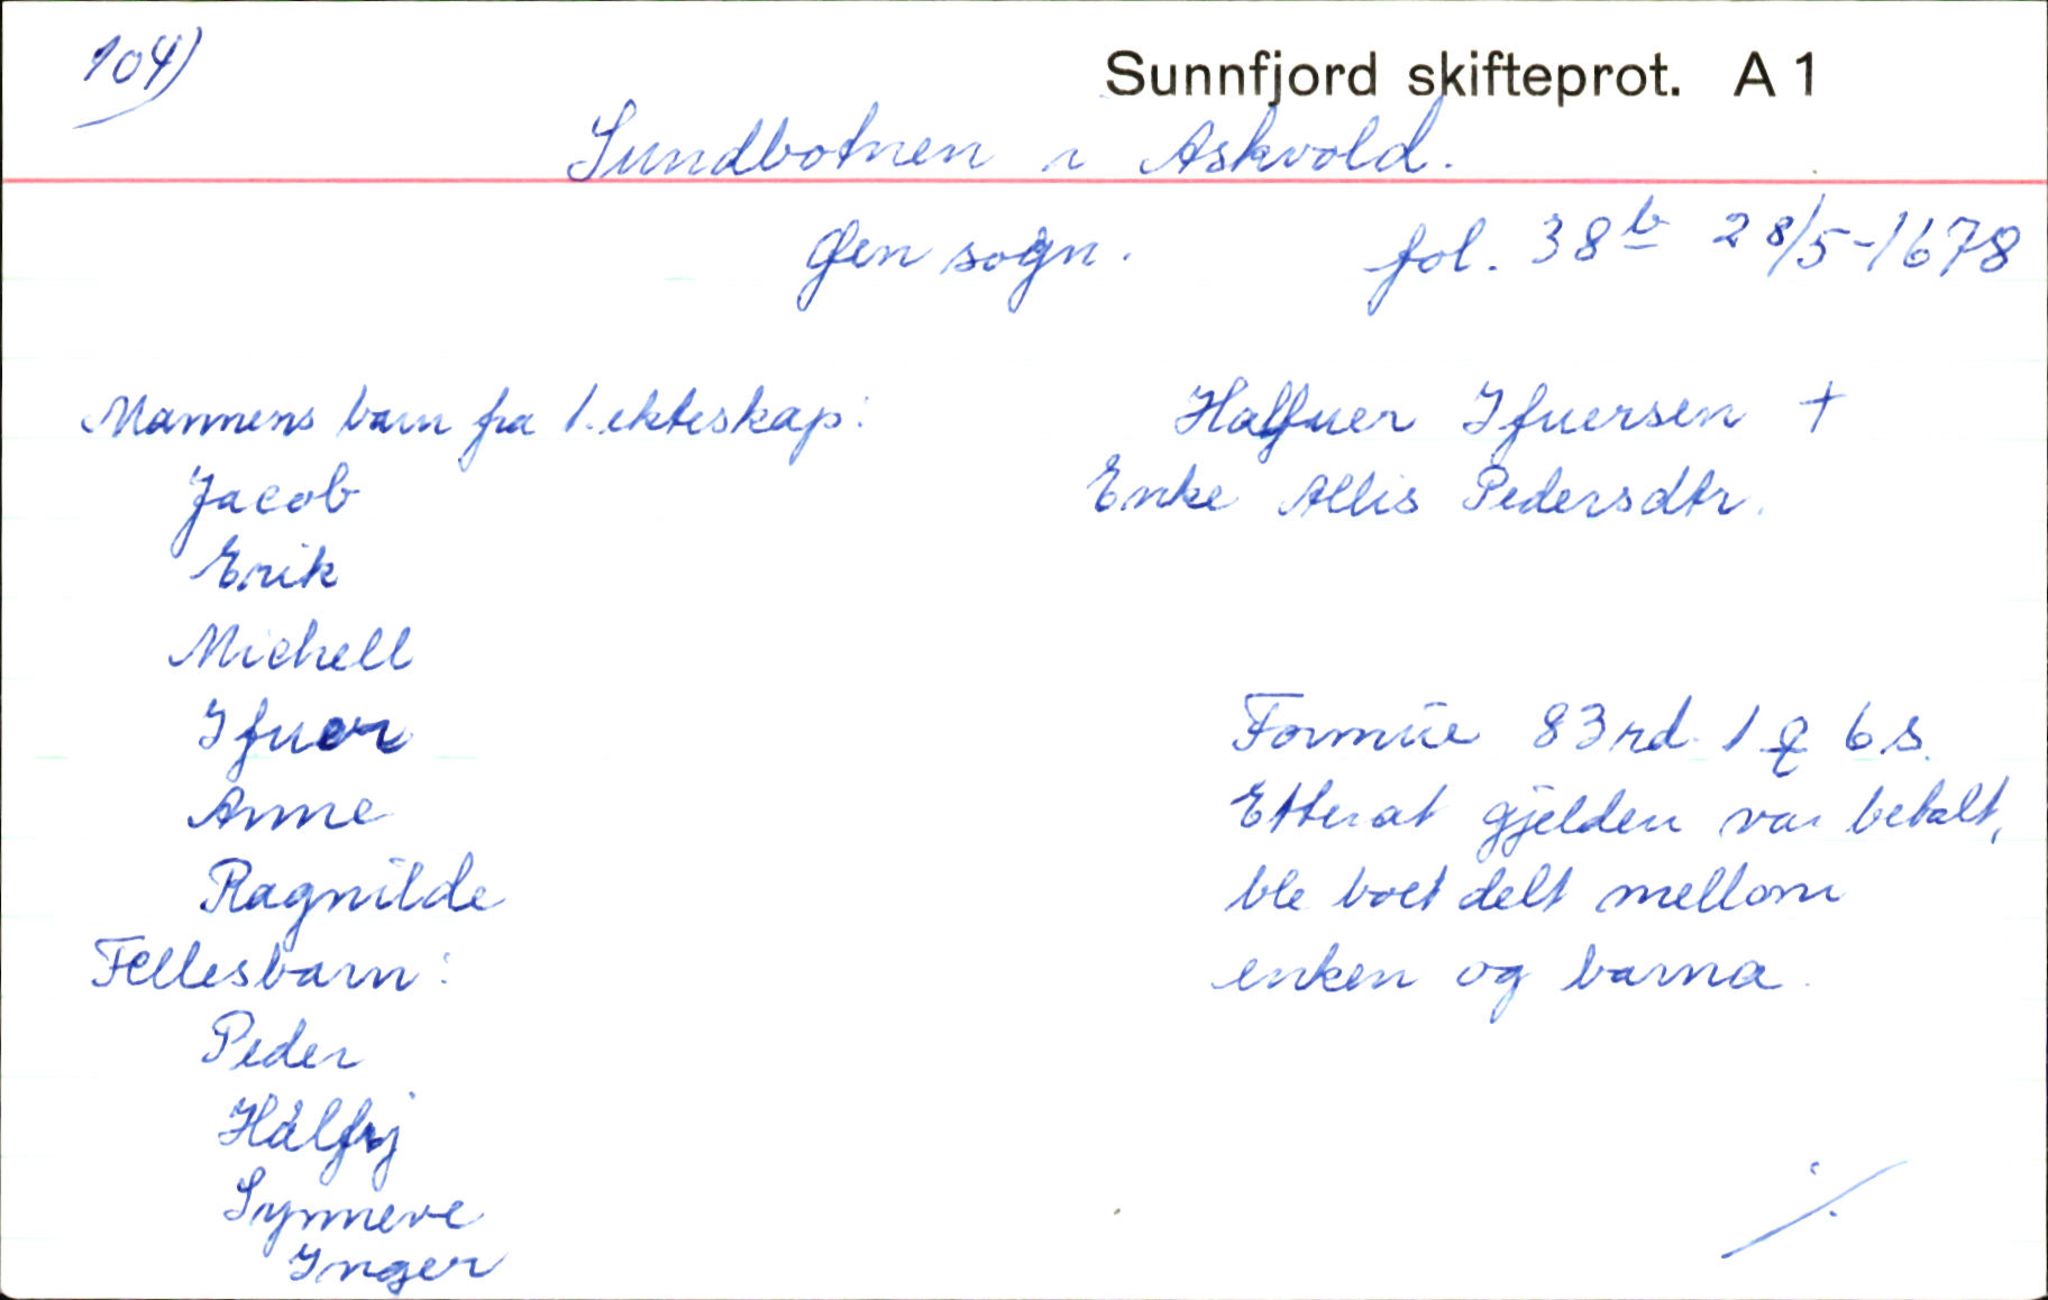 104)
Sunnfjord skifteprot. A 1
Sundbotnen i Askvold.
Gen sogn. fol. 38b 28/5-1678
Mannens barn fra 1. ekteskap:
Jacob
Erik
Michell
Ifuer
Anne
Ragnilde
Fellesbarn:
Peder
Hålfrj
Synneve
Inger
Halfuer Ifuersen +
Enke Allis Pedersdtr.
Formue 83 rd. 1 6 s.
Etterat gjelden var betalt,
ble boet delt mellom
enken og barna.
./.